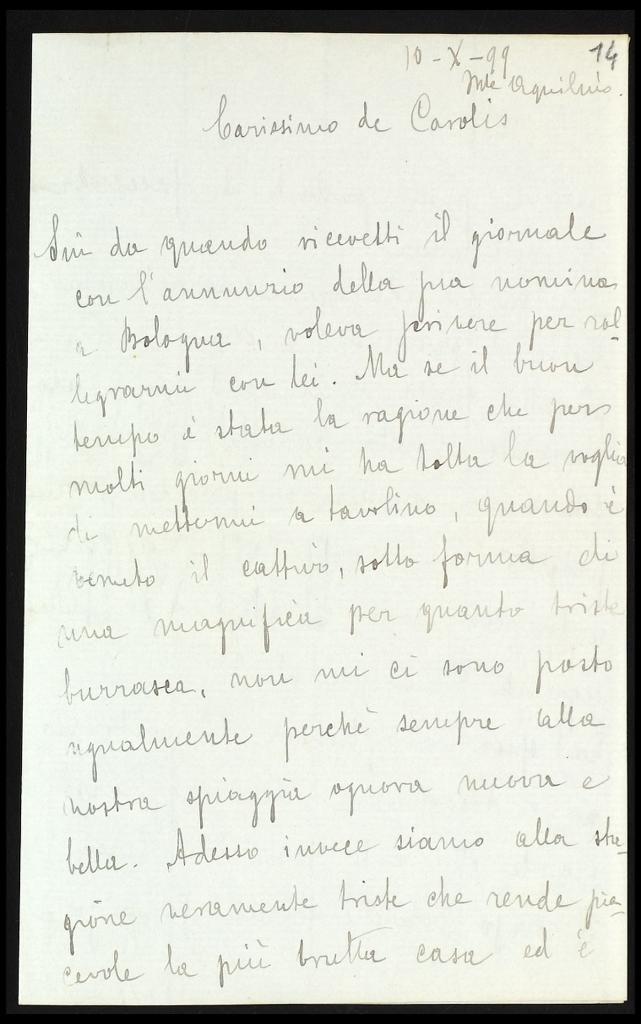 10-X-99 14
Mte Aquilino.
Carissimo de Carolis
Sin da quando ricevetti il giornale
con l'annunzio della sua nomina
a Bologna, voleva scrivere per ral-
legrarmi con lei. Ma se il buon
tempo è stata la ragione che per
molti giorni mi ha tolta la voglia
di mettermi a tavolino, quando è
venuto il cattivo, sotto forma di
una magnifica per quanto triste
burrasca, non mi ci sono posto
ugualmente perchè sempre alla
nostra spiaggia ognora nuova e
bella. Adesso invece siamo alla sta-
gione veramente triste che rende pia-
cevole la più brutta casa ed è